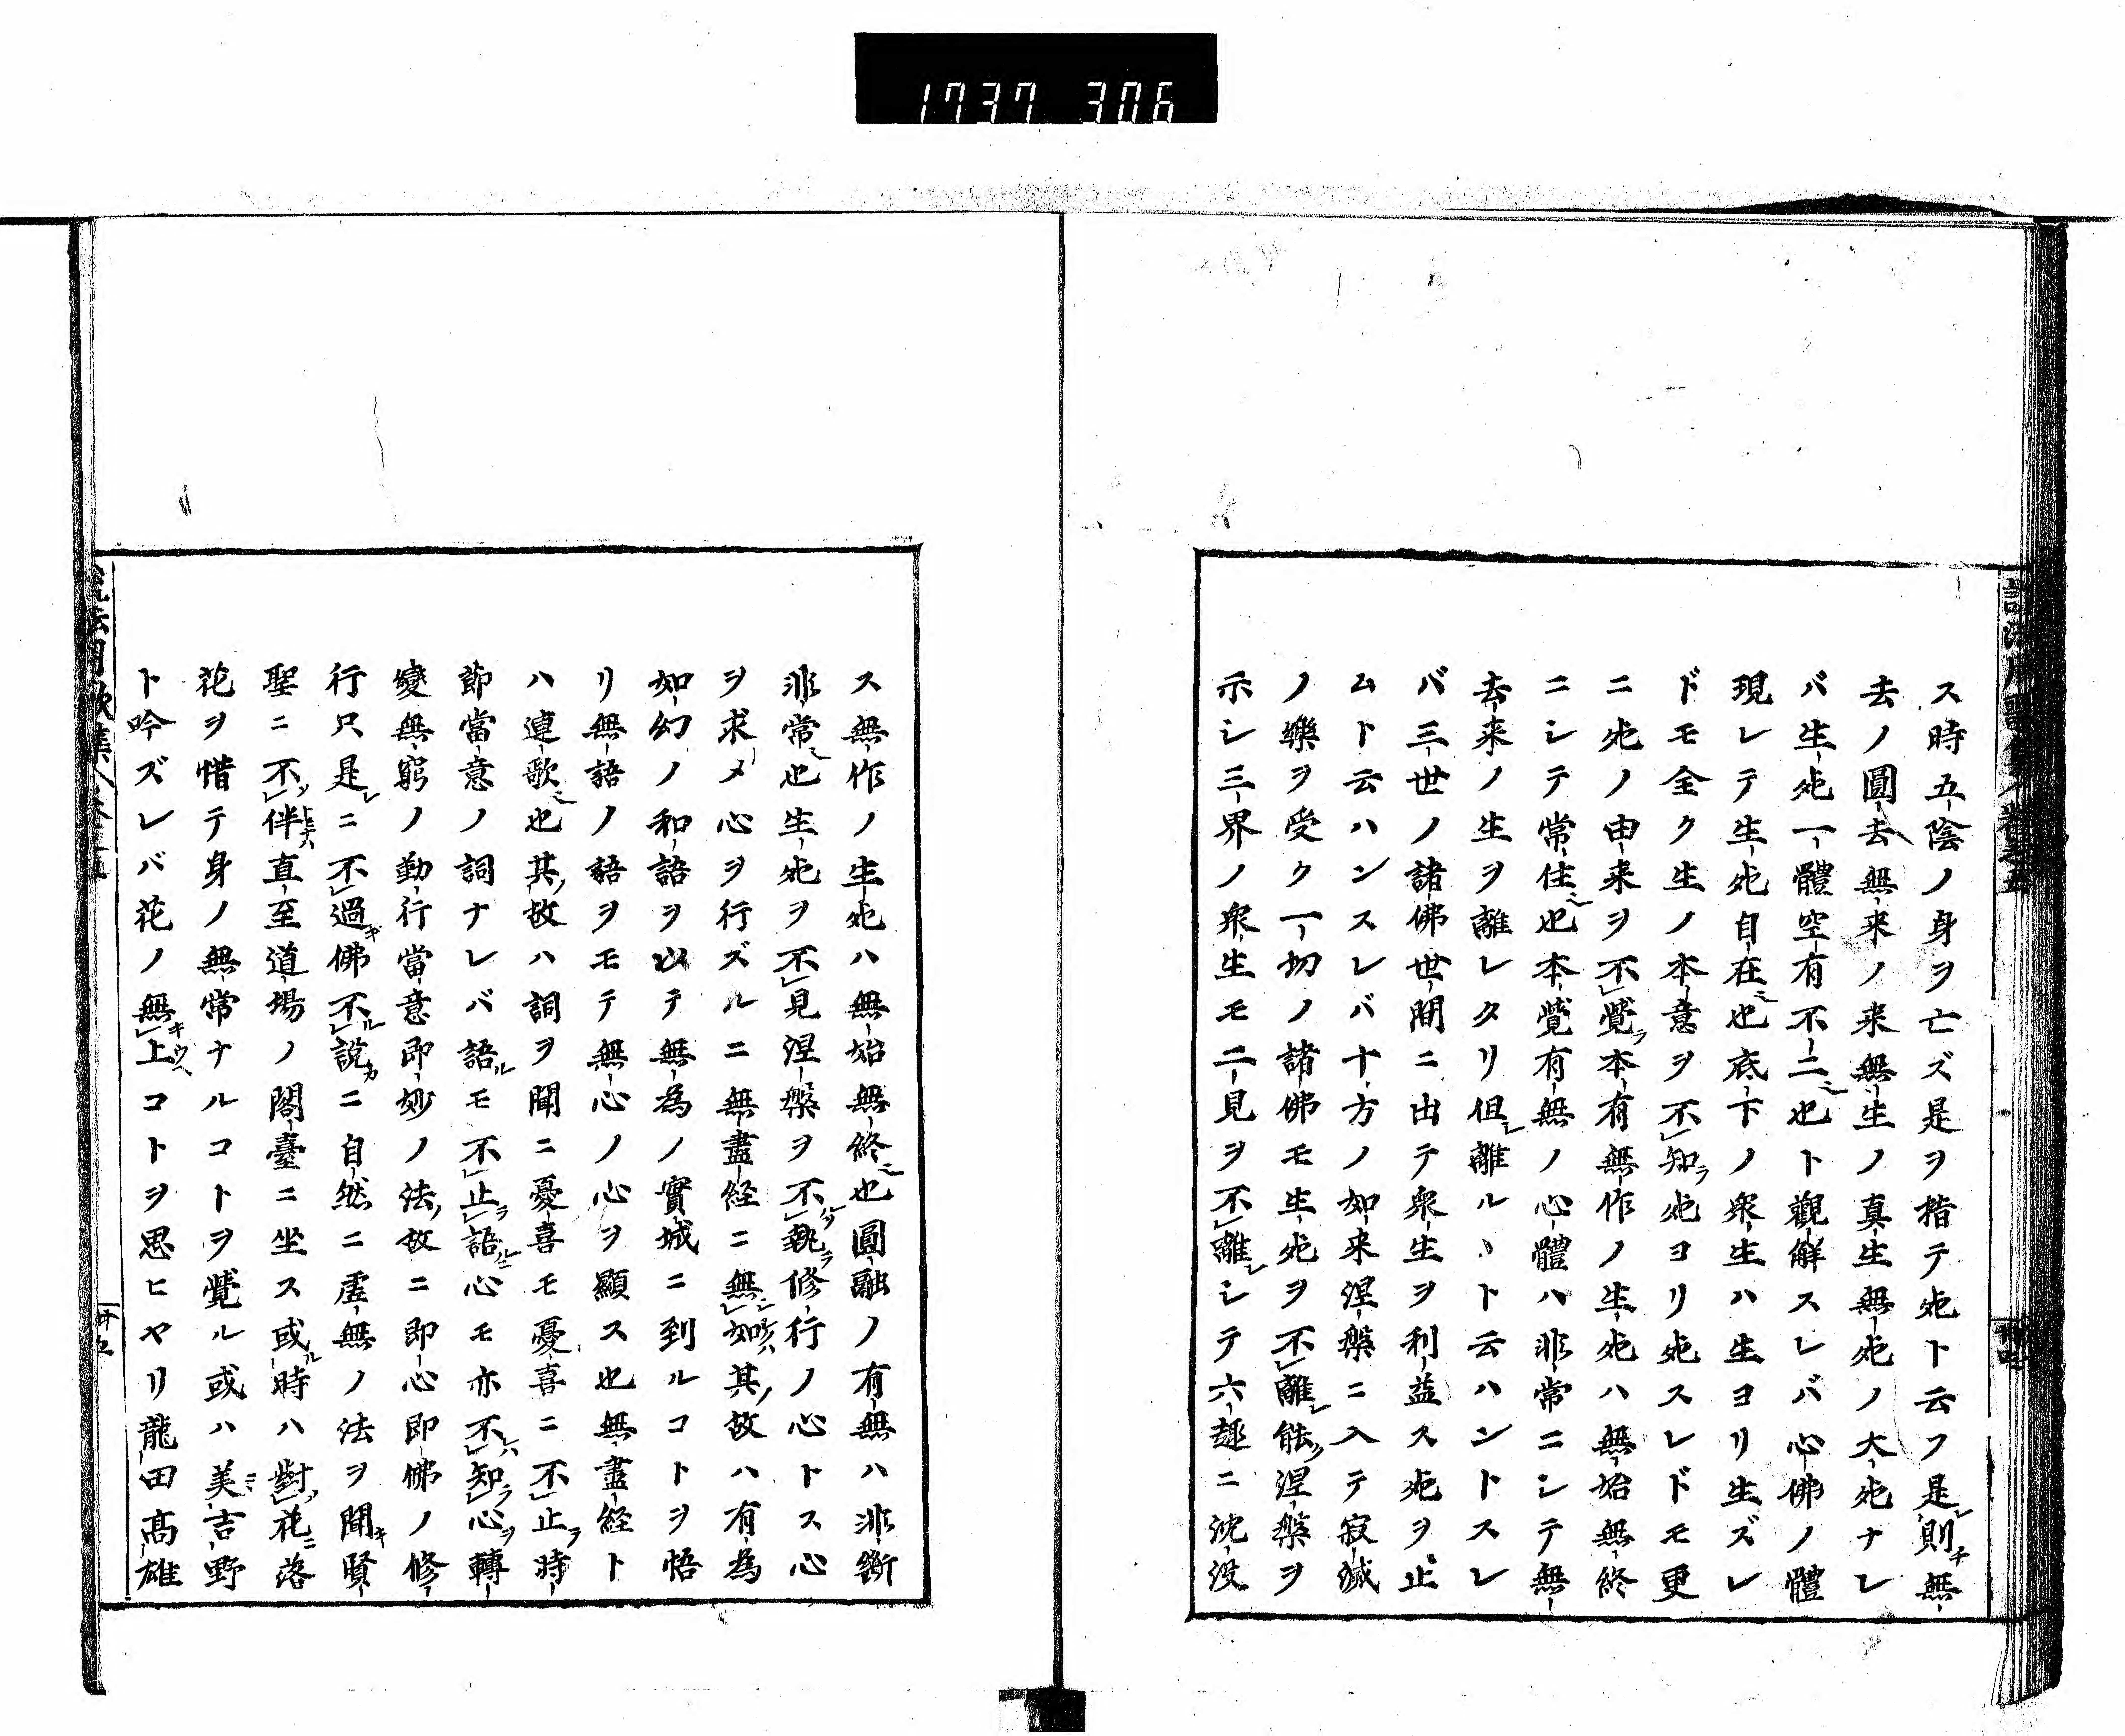 1737 306
ス時五陰ノ身ヲ亡ズ是ヲ指テ死ト云フ是レ則チ無
去ノ圓去無来ノ来無生ノ真生無死ノ大死ナレ
バ生死一體空有不二也ト觀解スレバ心佛ノ體
現レテ生死自在也底下ノ衆生ハ生ヨリ生ズレ
ドモ全ク生ノ本意ヲ不知ラ死ヨリ死スレドモ更
ニ死ノ由来ヲ不覺ラ本有無作ノ生死ハ無始無終
ニシテ常住也本覺有無ノ心體ハ非常ニシテ無
去来ノ生ヲ離レタリ但シ離ルヽト云ハントスレ
バ三世ノ諸佛世間ニ出テ衆生ヲ利益ス死ヲ止
ムト云ハンスレバ十方ノ如来涅槃ニ入テ寂滅
ノ樂ヲ受ク一切ノ諸佛モ生死ヲ不離レ能ク涅槃ヲ
示シ三界ノ衆生モ二見ヲ不離レシテ六趣ニ沈没
ス無作ノ生死ハ無始無終也圓融ノ有無ハ非斷
非常也生死ヲ不見涅槃ヲ不執ラ修行ノ心トス心
ヲ求メ心ヲ行ズルニ無盡経ニ無如其ノ故ハ有為
如幻ノ和語ヲ以テ無為ノ實城ニ到ルコトヲ悟
リ無語ノ語ヲモテ無心ノ心ヲ顯ス也無盡経ト
ハ連歌也其ノ故ハ詞ヲ聞ニ憂喜モ憂喜ニ不止ラ時
節當意ノ詞ナレバ語ルモ不止ラ語ルニ心モ亦不知ラ心ヲ轉
變無窮ノ勤行當意即妙ノ法ノ故ニ即心即佛ノ修
行只是レニ不過キ佛不説カニ自然ニ虚無ノ法ヲ聞キ賢
聖ニ不伴ナハ直至道場ノ閣臺ニ坐ス或ル時ハ對シ花ニ落
花ヲ惜テ身ノ無常ナルコトヲ覺ル或ハ美吉野
ト吟ズレバ花ノ無キ上ウヘコトヲ思ヒヤリ龍田高雄